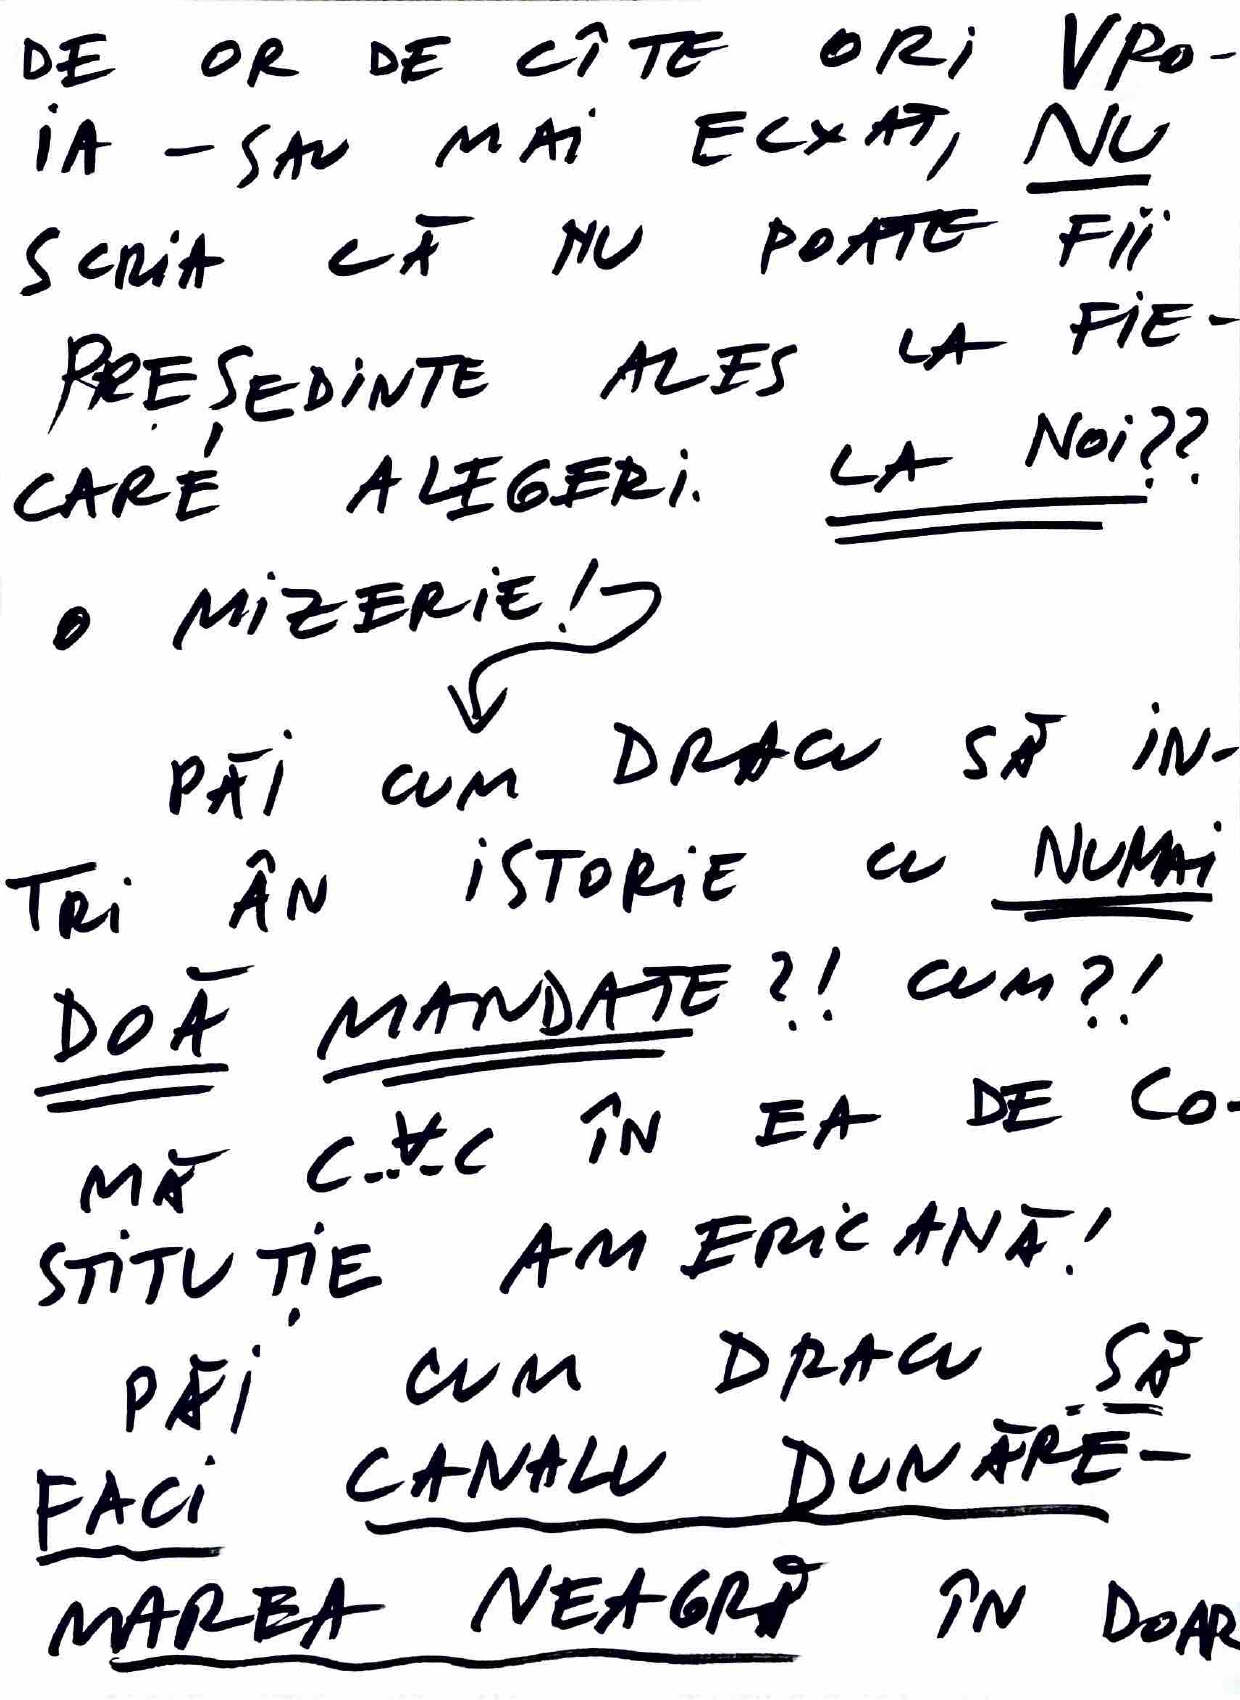 DE OR DE CÎTE ORI VRO-
IA - SAU MAI ECXAT, NU
SCRIA CĂ NU POATE FII
PREȘEDINTE ALES LA FIE-
CARE ALEGERI. LA NOI??
O MIZERIE!
PĂI CUM DRACU SĂ IN-
TRI ÂN ISTORIE CU NUMAI
DOĂ MANDATE?! CUM?!
MĂ C..Ɐ..C ÎN EA DE CO-
STITUȚIE AMERICANĂ!
PĂI CUM DRACU SĂ
FACI CANALU DUNĂRE-
MAREA NEAGRĂ ÎN DOAR